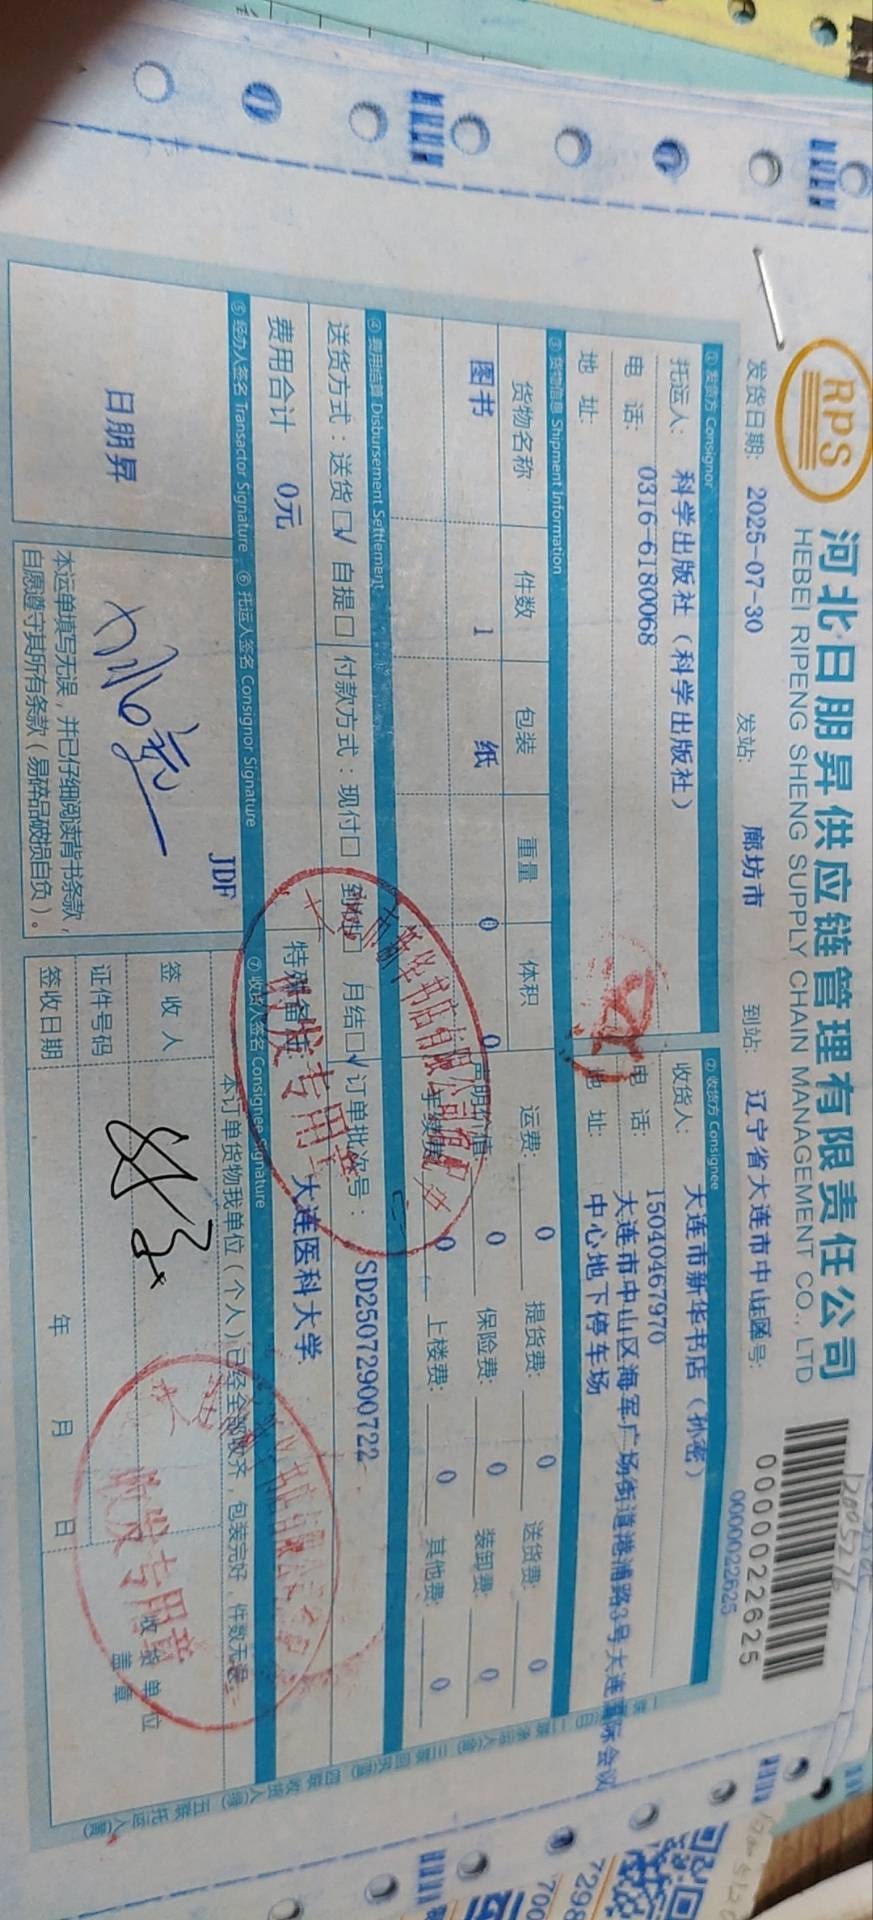 RPS
河北日朋昇供应链管理有限责任公司
HEBEI RIPENG SHENG SUPPLY CHAIN MANAGEMENT CO., LTD
0000022625
发货日期: 2025-07-30 发站: 廊坊市 到站: 辽宁省大连市中山区 号: 0000022625
① 发货方 Consignor ② 收货方 Consignee
托运人: 科学出版社（科学出版社） 收货人: 大连市新华书店（孙密）
电 话: 0316-6180068 电 话: 15040467970
地 址: 地 址: 大连市中山区海军广场街道港浦路3号大连国际会议
中心地下停车场
③ 货物信息 Shipment Information
货物名称 件数 包装 重量 体积 运费: 0 提货费: 0 送货费: 0
图书 1 纸 0 0 声明价值 0 保险费: 0 装卸费: 0
手续费 0 上楼费: 0 其他费: 0
④ 费用结算 Disbursement Settlement
送货方式：送货☑ 自提□ 付款方式：现付□ 到付□ 月结☑ 订单批次号： SD25072900722
费用合计 0元 特殊备注 大连医科大学
⑤ 经办人签名 Transactor Signature ⑥ 托运人签名 Consignor Signature ⑦ 收货人签名 Consignee Signature
日朋昇
JDF
本运单填写无误，并已仔细阅读背书条款，
自愿遵守其所有条款（易碎品破损自负）。
本订单货物我单位（个人）已经全部收齐，包装完好，件数无误。
签 收 人
证件号码
签收日期 年 月 日
收货单位
盖章
收发专用章
收发专用章
7298
700